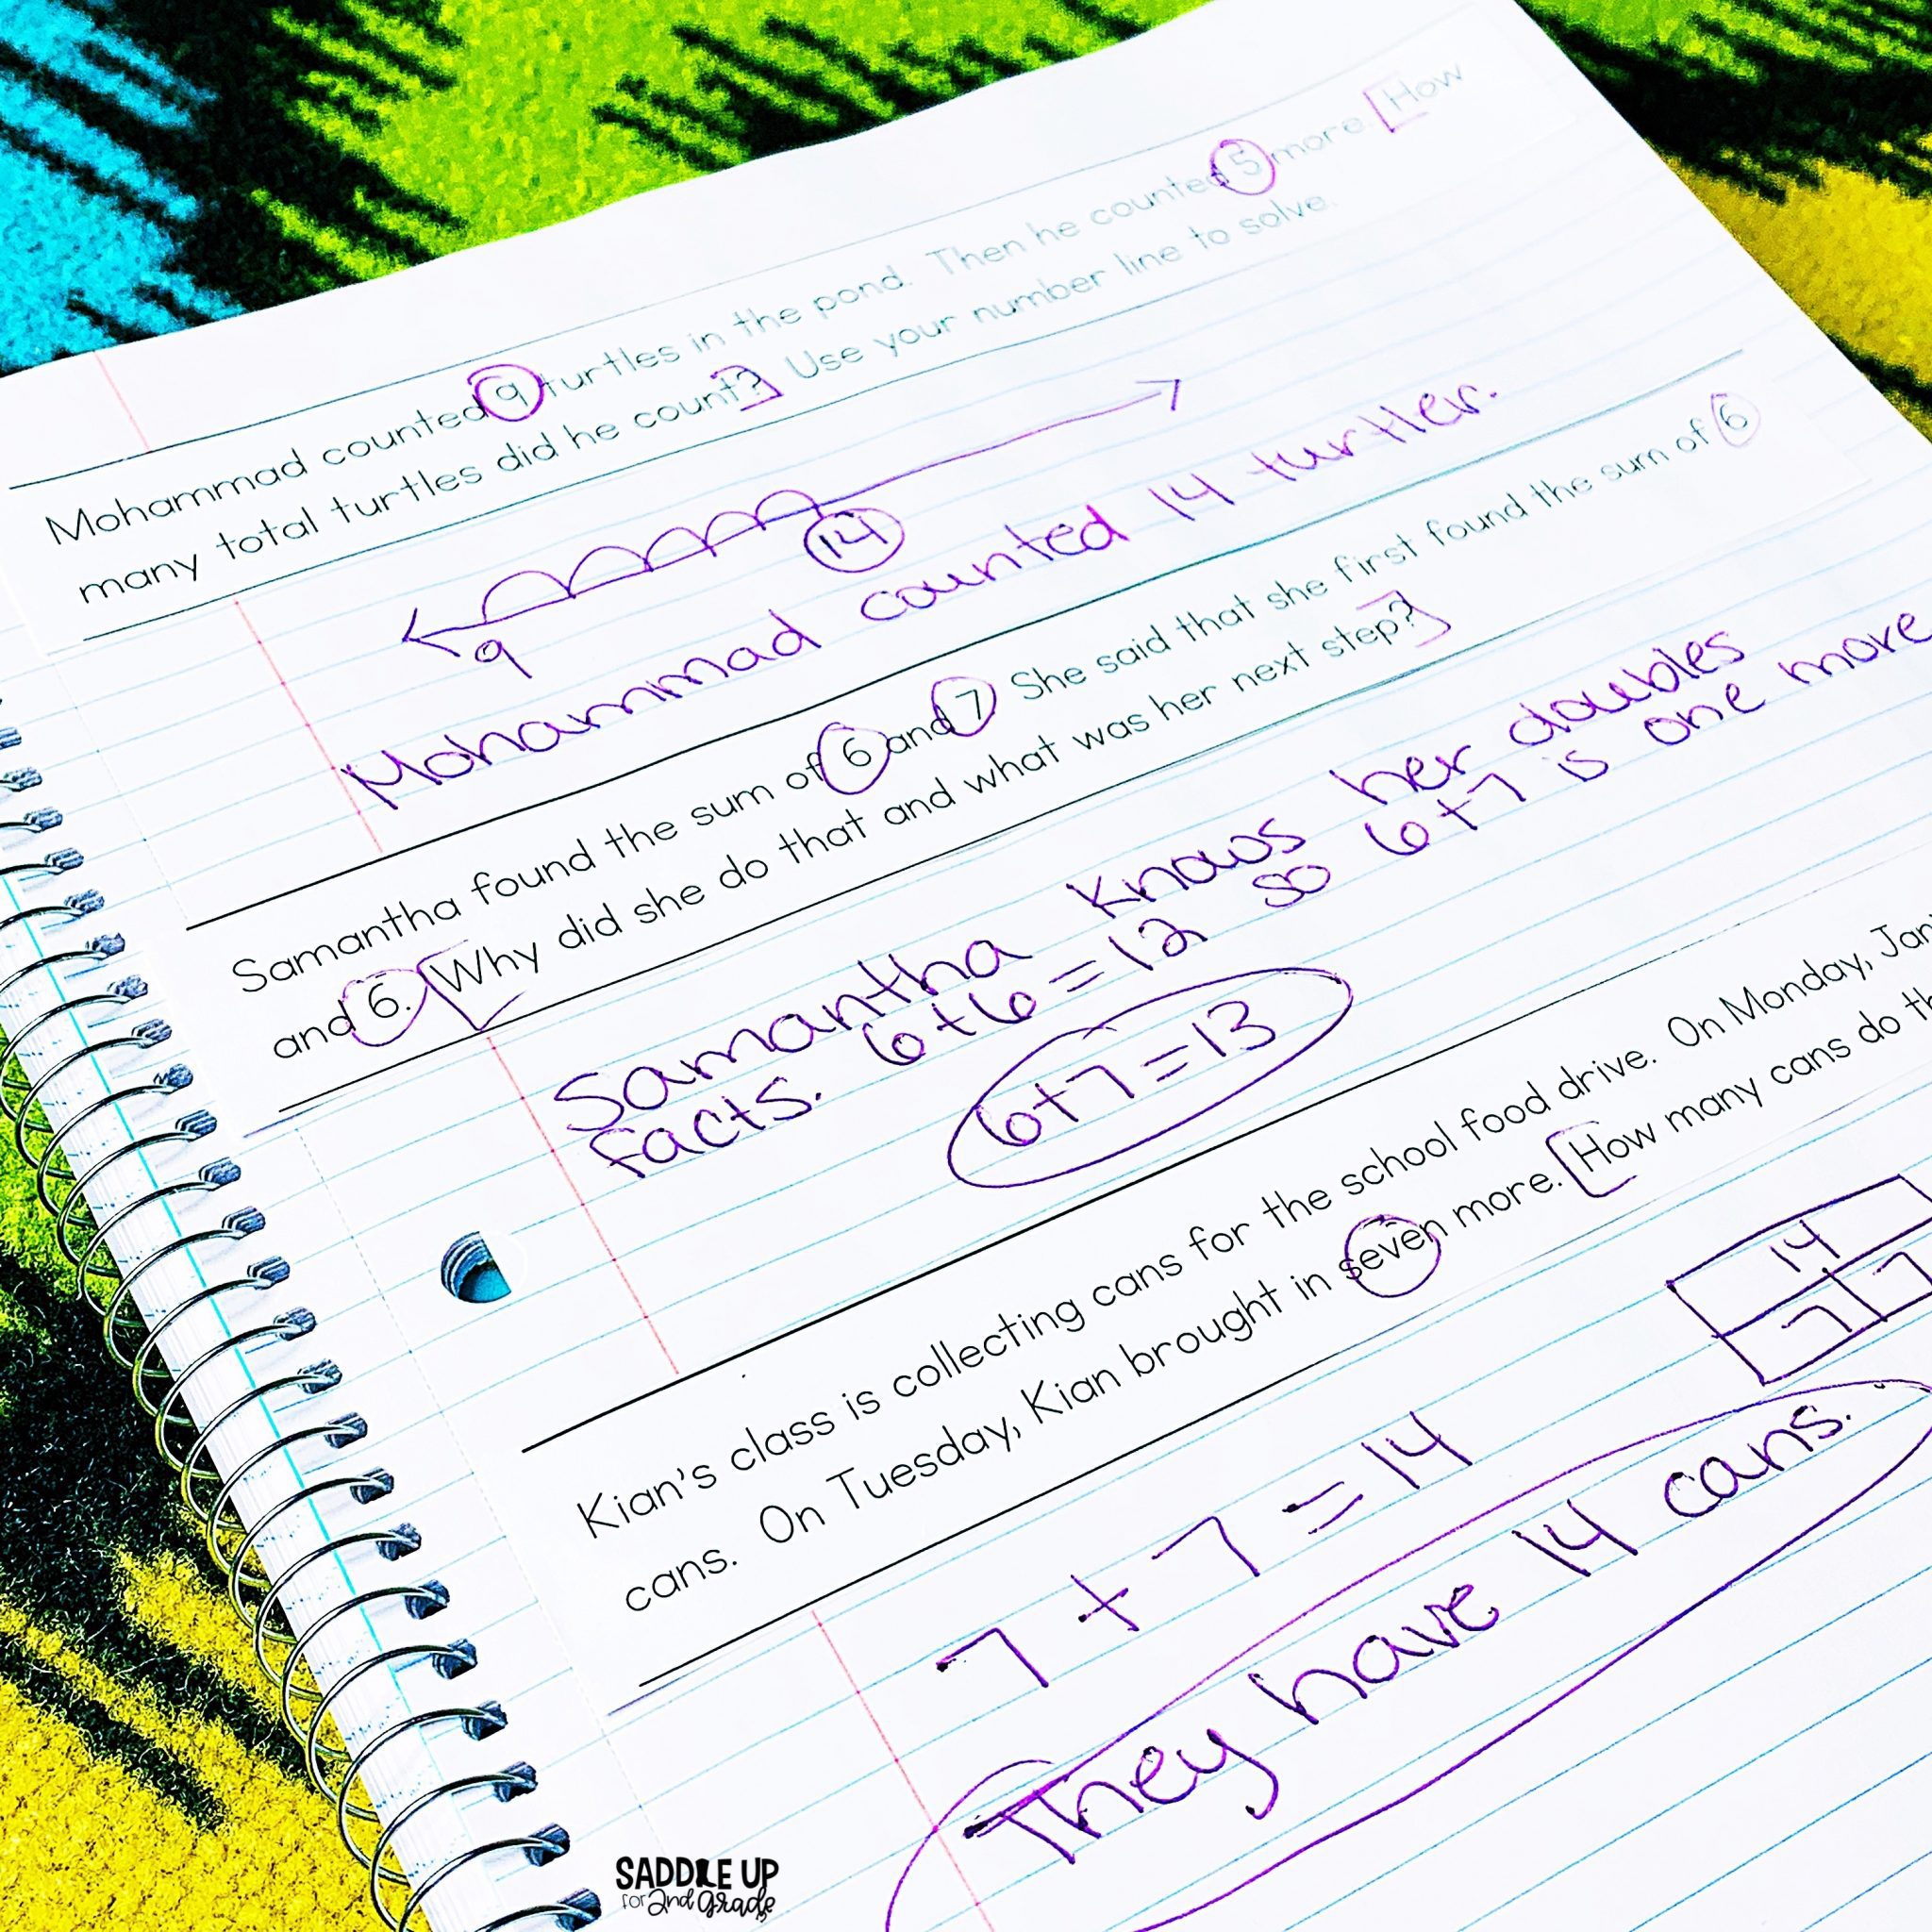 Mohammad counted 9 turtles in the pond. Then he counted 5 more. [How
many total turtles did he count?] Use your number line to solve.
9 14
Mohammad counted 14 turtles.
Samantha found the sum of 6 and 7 She said that she first found the sum of 6
and 6. [Why did she do that and what was her next step?]
Samantha knows her doubles
facts. 6+6=12 so 6+7 is one more
6+7=13
Kian's class is collecting cans for the school food drive. On Monday,
cans. On Tuesday, Kian brought in seven more. [How many cans do
14
7 7
7 + 7 = 14
They have 14 cans.
SADDLE UP
for 2nd grade